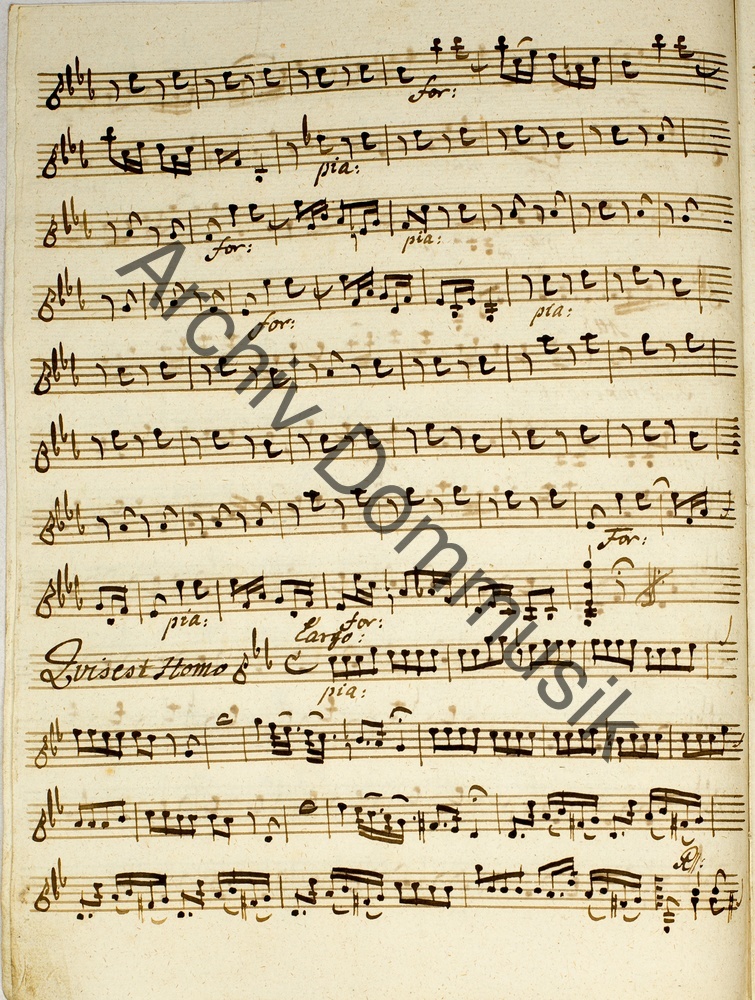 for:
pia:
for: pia:
for: pia:
For:
pia: for:
Largo:
Quis est Homo
pia:
Archiv Dommusik